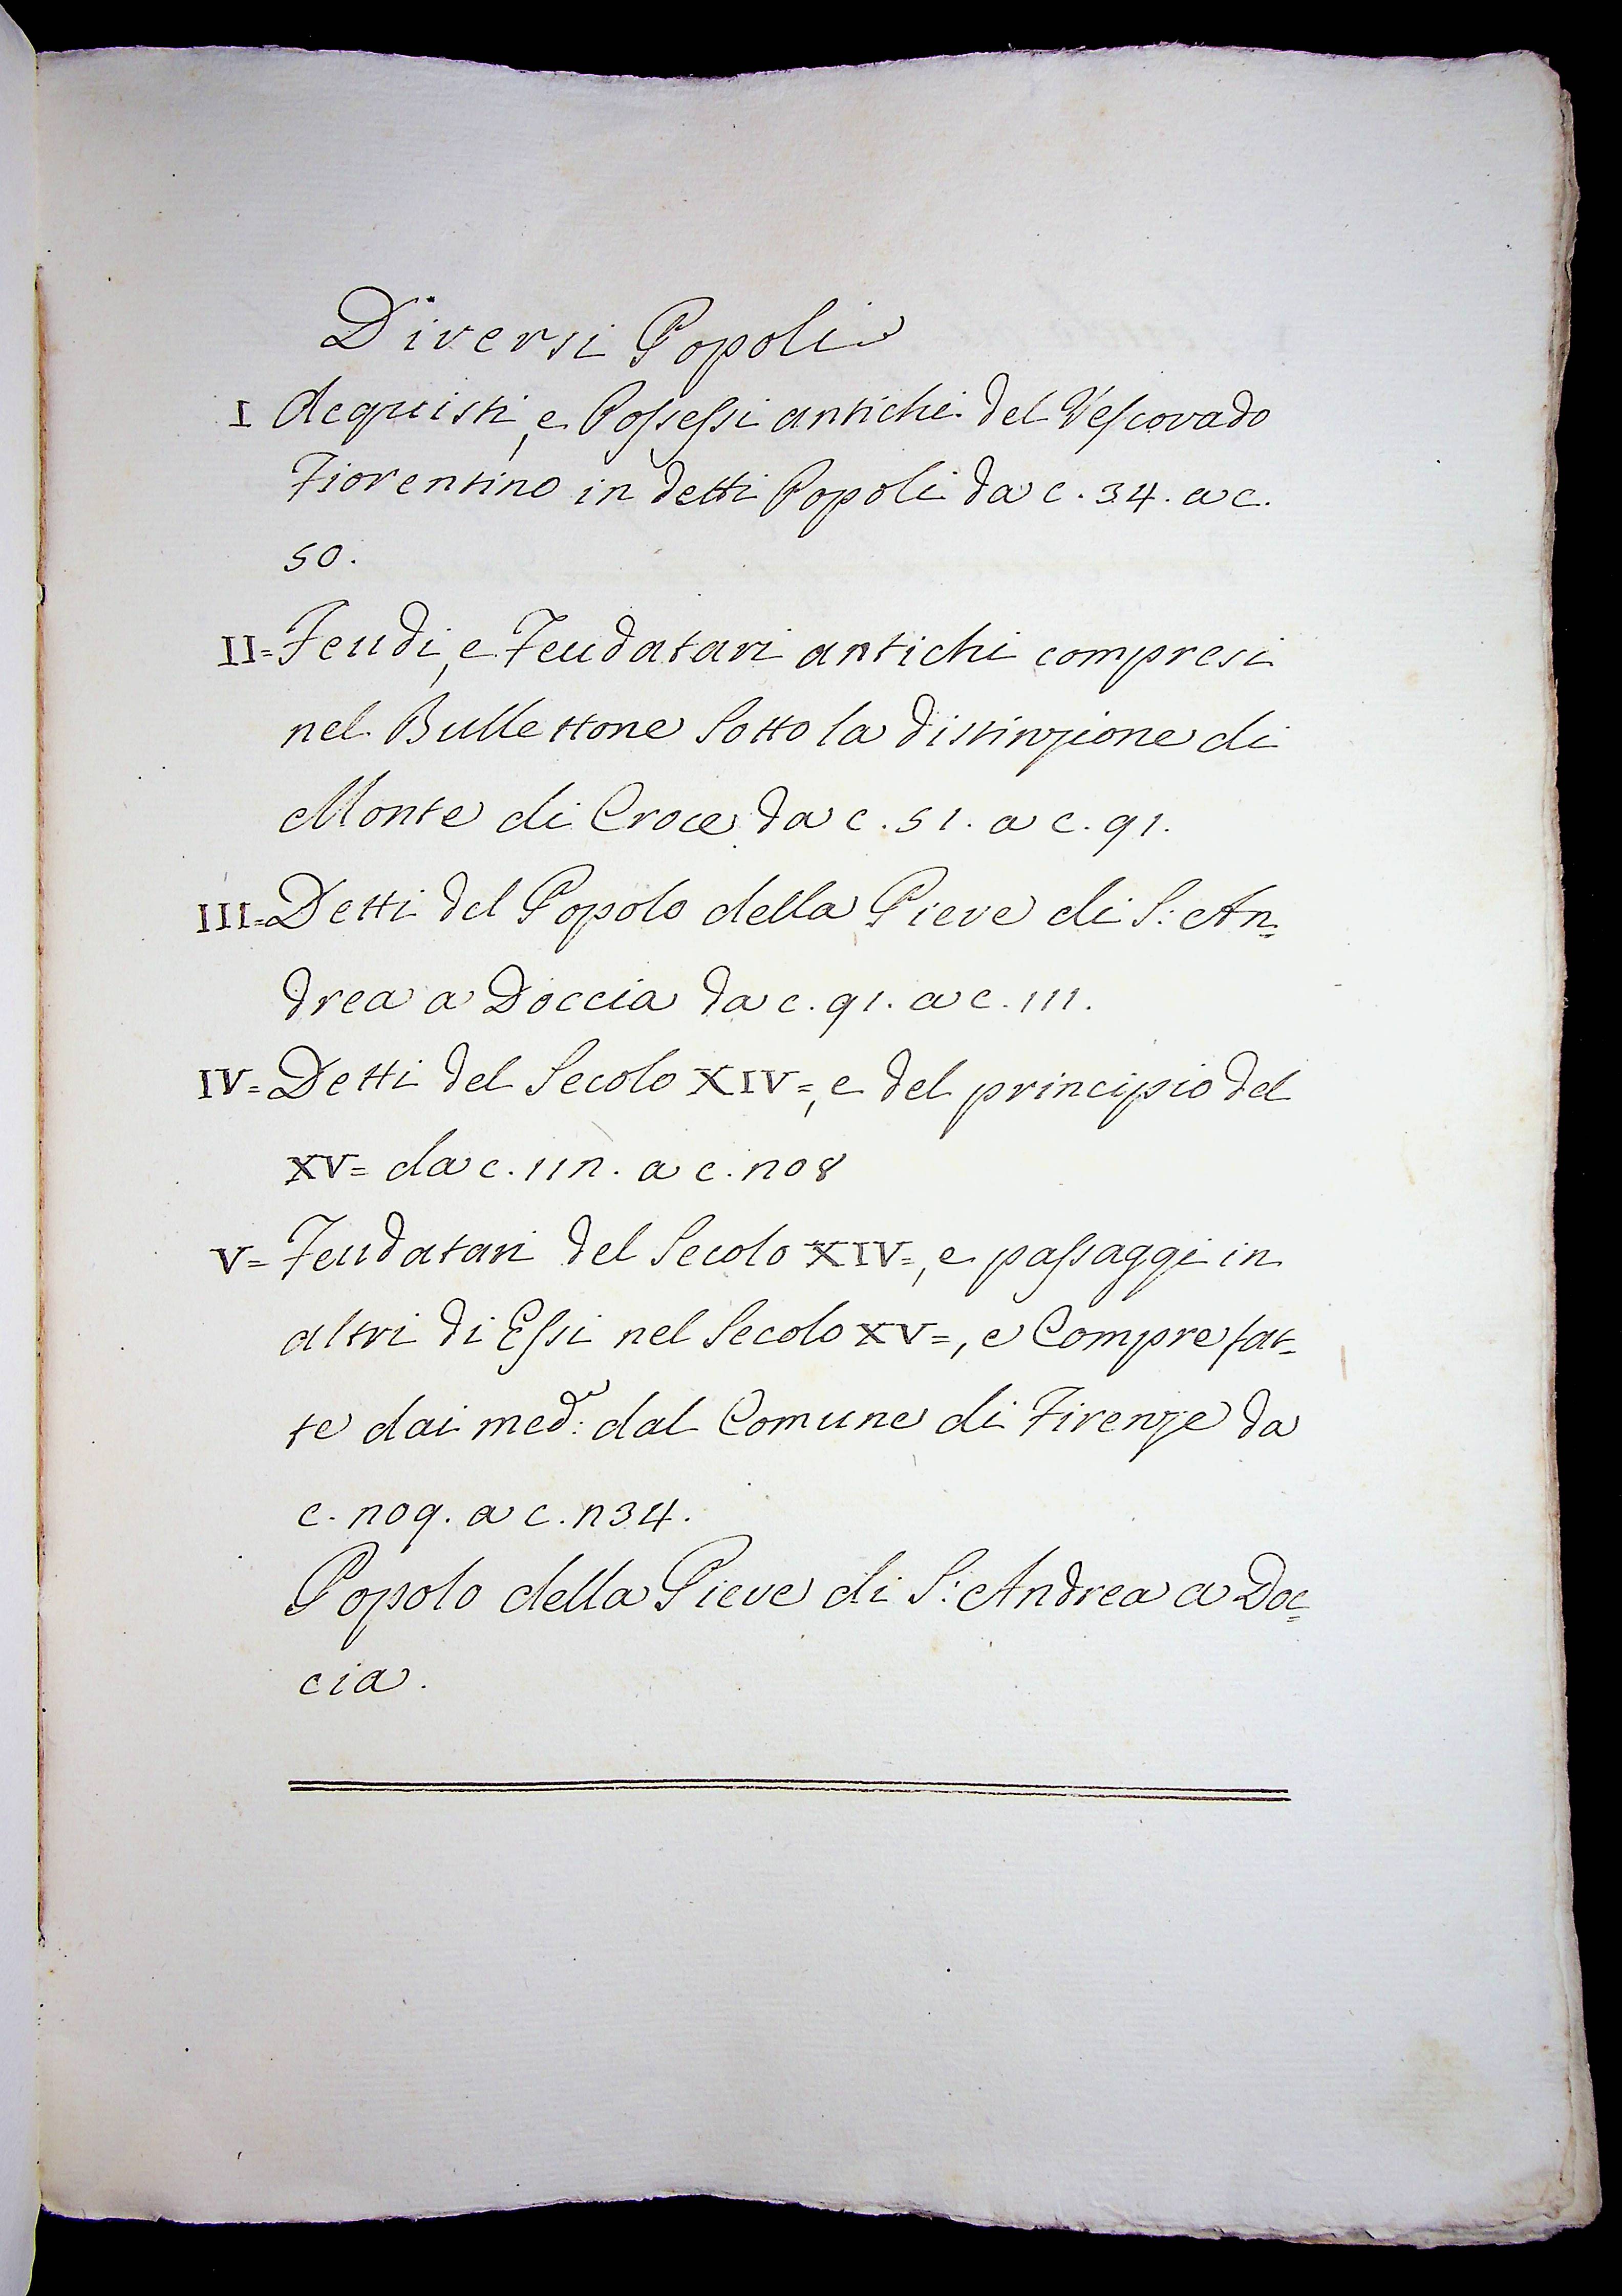 Diversi Popoli
I Acquisti, e Possessi antichi del Vescovado
Fiorentino in detti Popoli da c. 34. a c.
50.
II= Feudi, e Feudatari antichi compresi
nel Bullettone Sotto la distinzione di
Monte di Croce da c. 51. a c. 91.
III= Detti del Popolo della Pieve di S: An=
drea a Doccia da c. 91. a c. 111.
IV= Detti del Secolo XIV=, e del principio del
XV= da c. 112. a c. 208
V= Feudatari del Secolo XIV=, e passaggi in
altri di Essi nel Secolo XV=, e Compre fat=
te dai med:i dal Comune di Firenze da
c. 209. a c. 234.
Popolo della Pieve di S: Andrea a Doc=
cia.